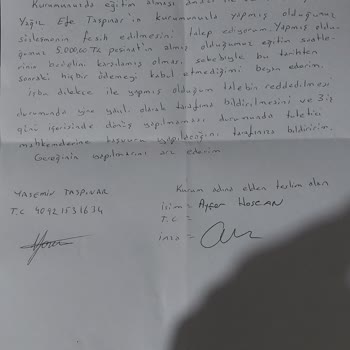 Kurumunuzda eğitim alması
Yağız Efe Taşpınar'ın kurumunuzla yapmış olduğumuz
sözleşmenin fesih edilmesini talep ediyorum. Yapmış oldu-
ğumuz 5.000,00 TL peşinat'ın almış olduğumuz eğitim saatle-
rinin bedelini karşılamış olması sebebiyle bu tarihten
sonraki hiçbir ödemeyi kabul etmediğimi beyan ederim.
İşbu dilekçe ile yapmış olduğum talebin reddedilmesi
durumunda yine yazılı olarak tarafıma bildirilmesini ve 3 iş
günü içerisinde dönüş yapılmaması durumunda tüketici
mahkemelerine başvuru yapılacağını tarafınıza bildiririm.
Gereğinin yapılmasını arz ederim
YASEMİN TAŞPINAR
T.C 40921531674
Kurum adına elden teslim alan
isim = Ayfer HOSCAN
T.C =
imza =